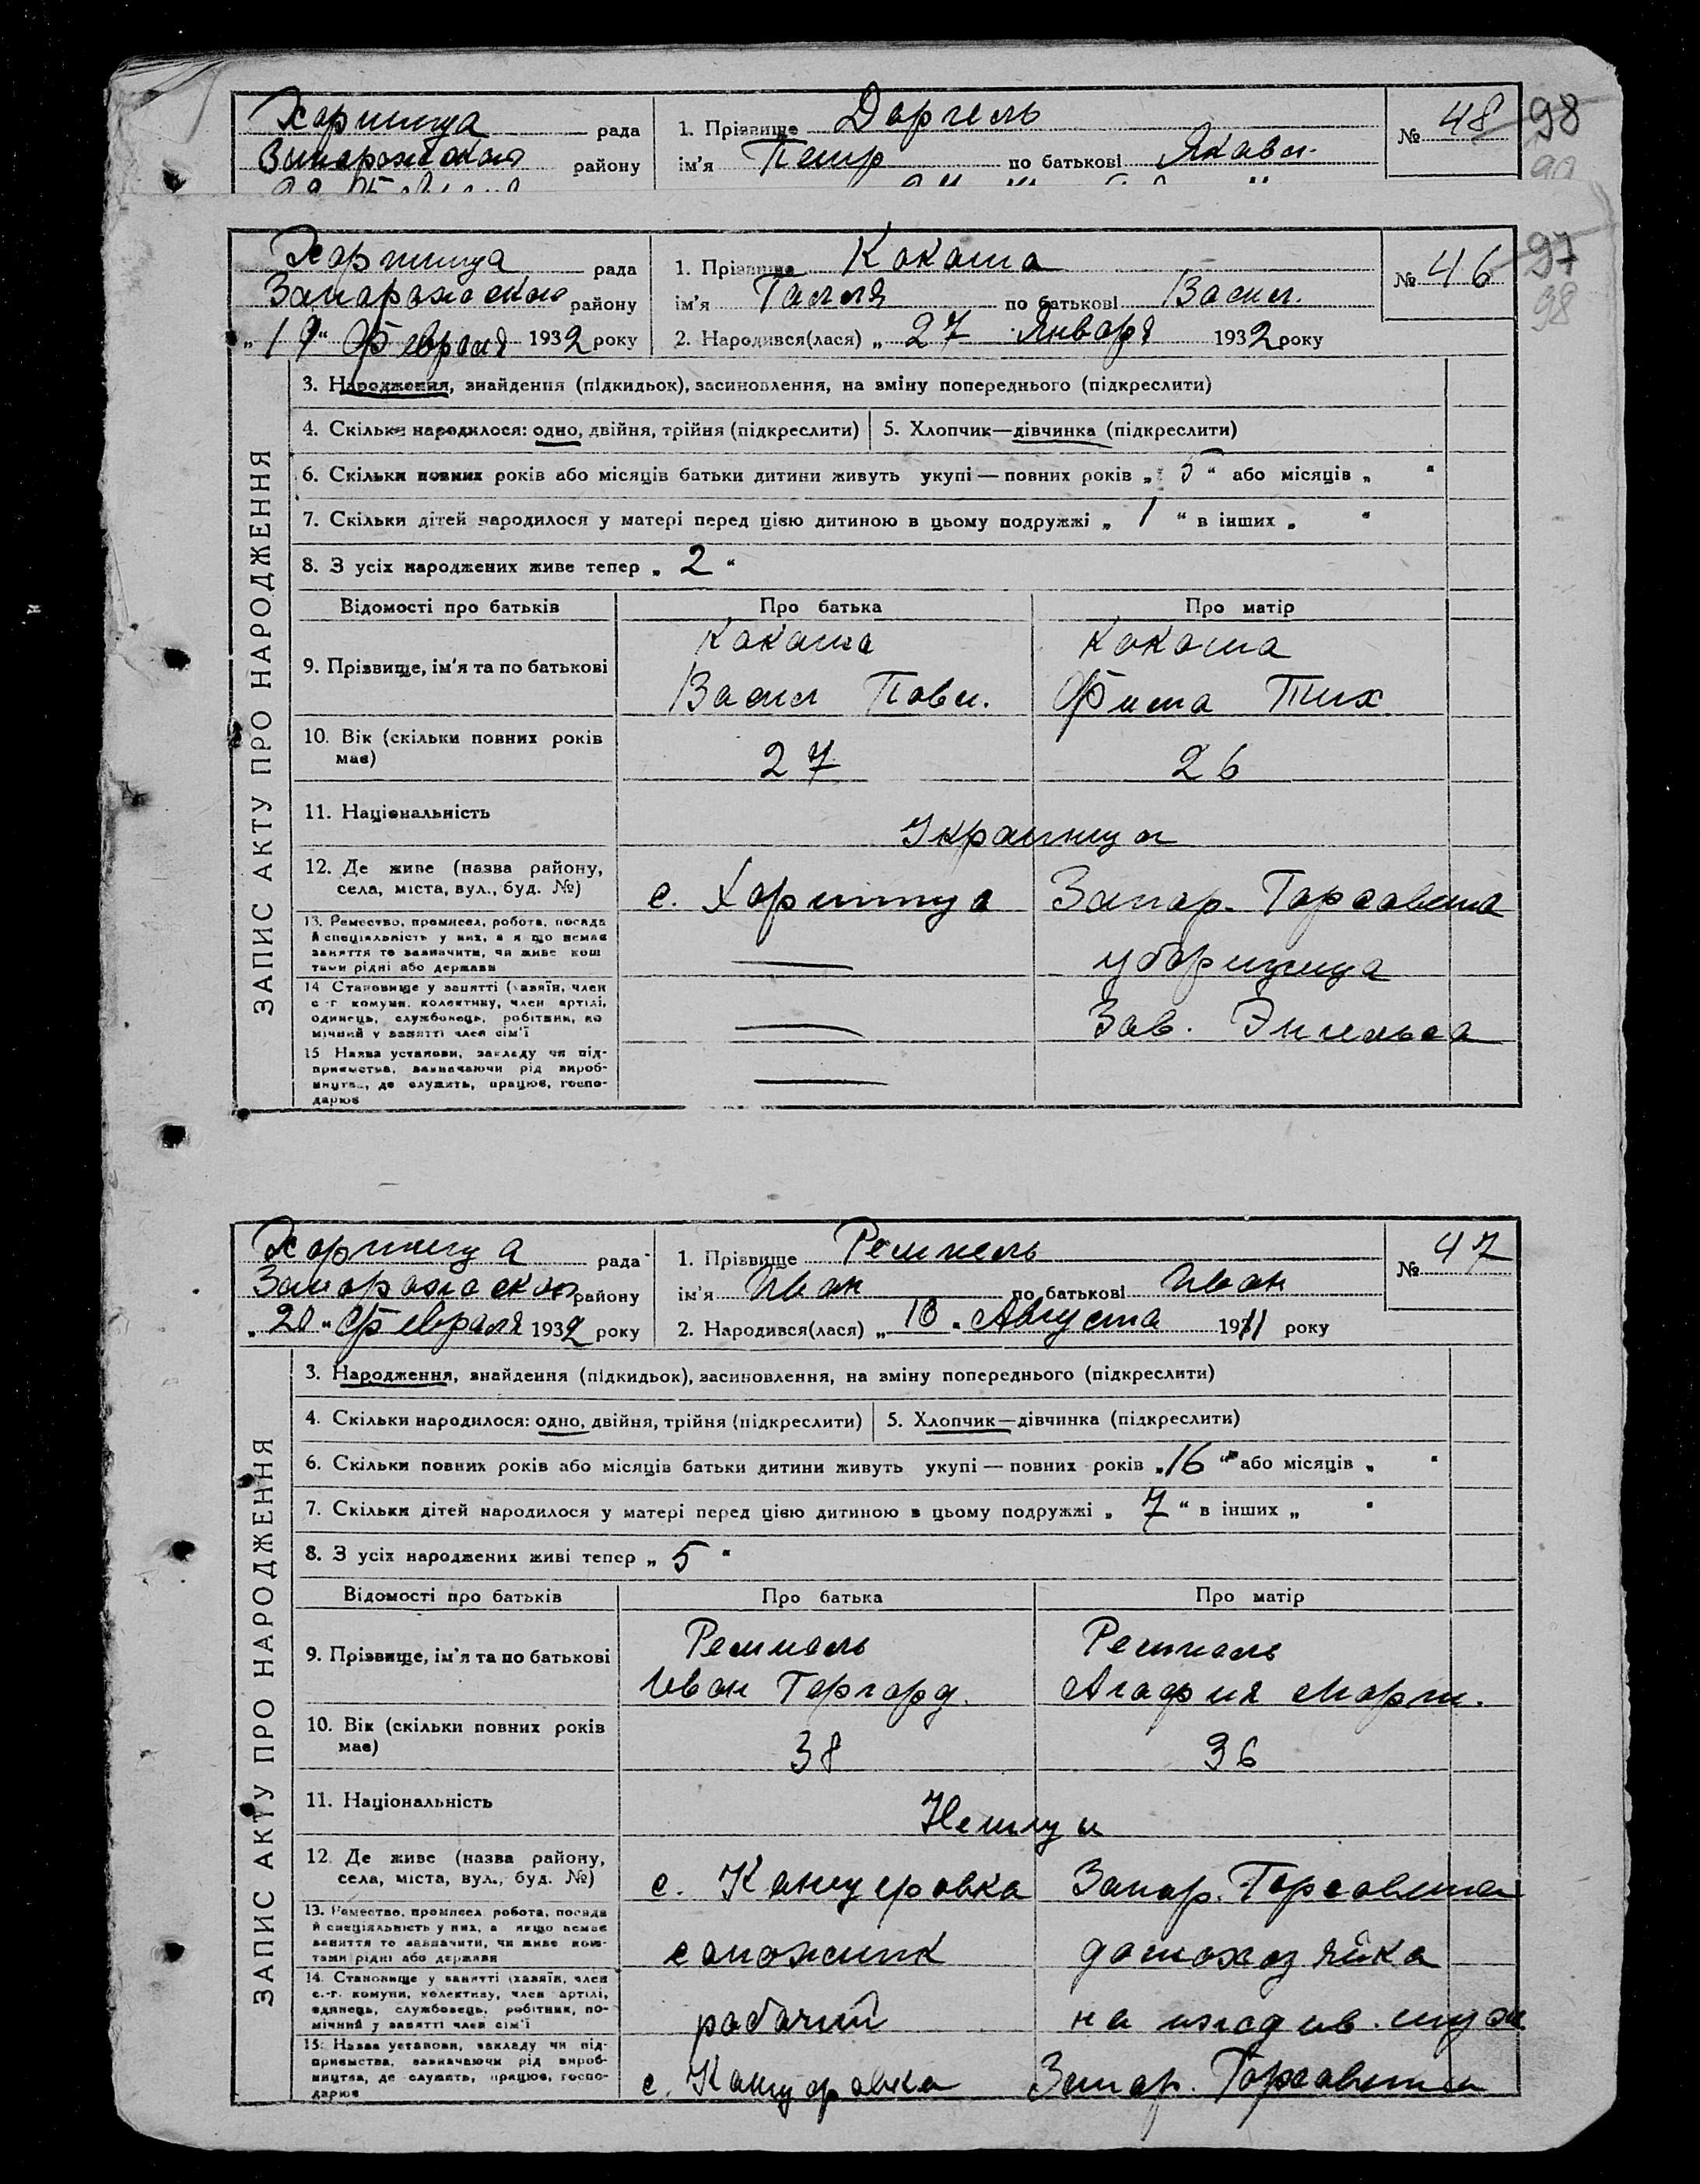 Хортица рада
1. Прізвище
№ 48 98
Запорожского району
ім'я Петр по батькові Якавл.
Хортица рада
1. Прізвище Какоша
№ 46 97
98
Запорожского району
ім'я Галля по батькові Васил.
„19“ Февраля 1932 року
2. Народився(лася) „27 Января 1932 року
ЗАПИС АКТУ ПРО НАРОДЖЕННЯ
3. Народження, знайдення (підкидьок), засиновлення, на зміну попереднього (підкреслити)
4. Скільки народилося: одно, двійня, трійня (підкреслити) 5. Хлопчик—дівчинка (підкреслити)
6. Скільки повних років або місяців батьки дитини живуть укупі — повних років „ 5 “ або місяців „ “
7. Скільки дітей народилося у матері перед цією дитиною в цьому подружжі „ 1 “ в інших „ “
8. З усіх народжених живе тепер „ 2 “
Відомості про батьків Про батька Про матір
9. Прізвище, ім'я та по батькові
Какоша Какоша
Васил Павл. Тих
10. Вік (скільки повних років має) 27 26
11. Національність Украинцы
12. Де живе (назва району, села, міста, вул., буд. №)
с. Хортица Запор. Горсовета
13. Ремество, промисел, робота, посада й спеціяльність у них, а якщо немає заняття то зазначити, чи живе коштами рідні або держави
— уборщица
14. Становище у занятті (хазяїн, член с.-г. комуни, колективу, член артілі, одинець, службовець, робітник, помічний у занятті член сім'ї
— Зав. Энгельса
15. Назва установи, закладу чи підприємства, зазначаючи рід виробництва, де служить, працює, господарює
—
Хортица рада
1. Прізвище Ремпель
№ 47
Запорожского району
ім'я Иван по батькові Иван
„20“ Февраля 1932 року
2. Народився(лася) „18“ Августа 1911 року
ЗАПИС АКТУ ПРО НАРОДЖЕННЯ
3. Народження, знайдення (підкидьок), засиновлення, на зміну попереднього (підкреслити)
4. Скільки народилося: одно, двійня, трійня (підкреслити) 5. Хлопчик—дівчинка (підкреслити)
6. Скільки повних років або місяців батьки дитини живуть укупі — повних років „16“ або місяців „ “
7. Скільки дітей народилося у матері перед цією дитиною в цьому подружжі „ 7 “ в інших „ “
8. З усіх народжених живі тепер „ 5 “
Відомості про батьків Про батька Про матір
9. Прізвище, ім'я та по батькові
Ремпель Ремпель
Иван Гергард. Агафия Март.
10. Вік (скільки повних років має) 38 36
11. Національність Немцы
12. Де живе (назва району, села, міста, вул., буд. №)
с. Канцеровка Запор. Горсовета
13. Ремество, промисел, робота, посада й спеціяльність у них, а якщо немає заняття то зазначити, чи живе коштами рідні або держави
сапожник домохозяйка
14. Становище у занятті (хазяїн, член с.-г. комуни, колективу, член артілі, одинець, службовець, робітник, помічний у занятті член сім'ї
рабочий на иждив. мужа
15. Назва установи, закладу чи підприємства, зазначаючи рід виробництва, де служить, працює, господарює
с. Канцеровка Запор. Горсовета